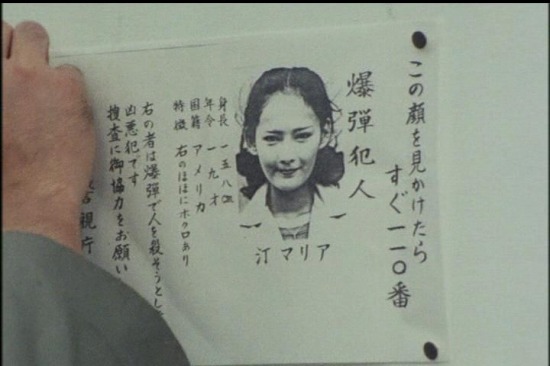 この顔を見かけたら
すぐ一一〇番
爆弾犯人
汀マリア
身長 一五八㎝
年令 一九才
国籍 アメリカ
特徴 右のほほにホクロあり
右の者は爆弾で人を殺そうとし
凶悪犯です
捜査に御協力をお願い
視庁